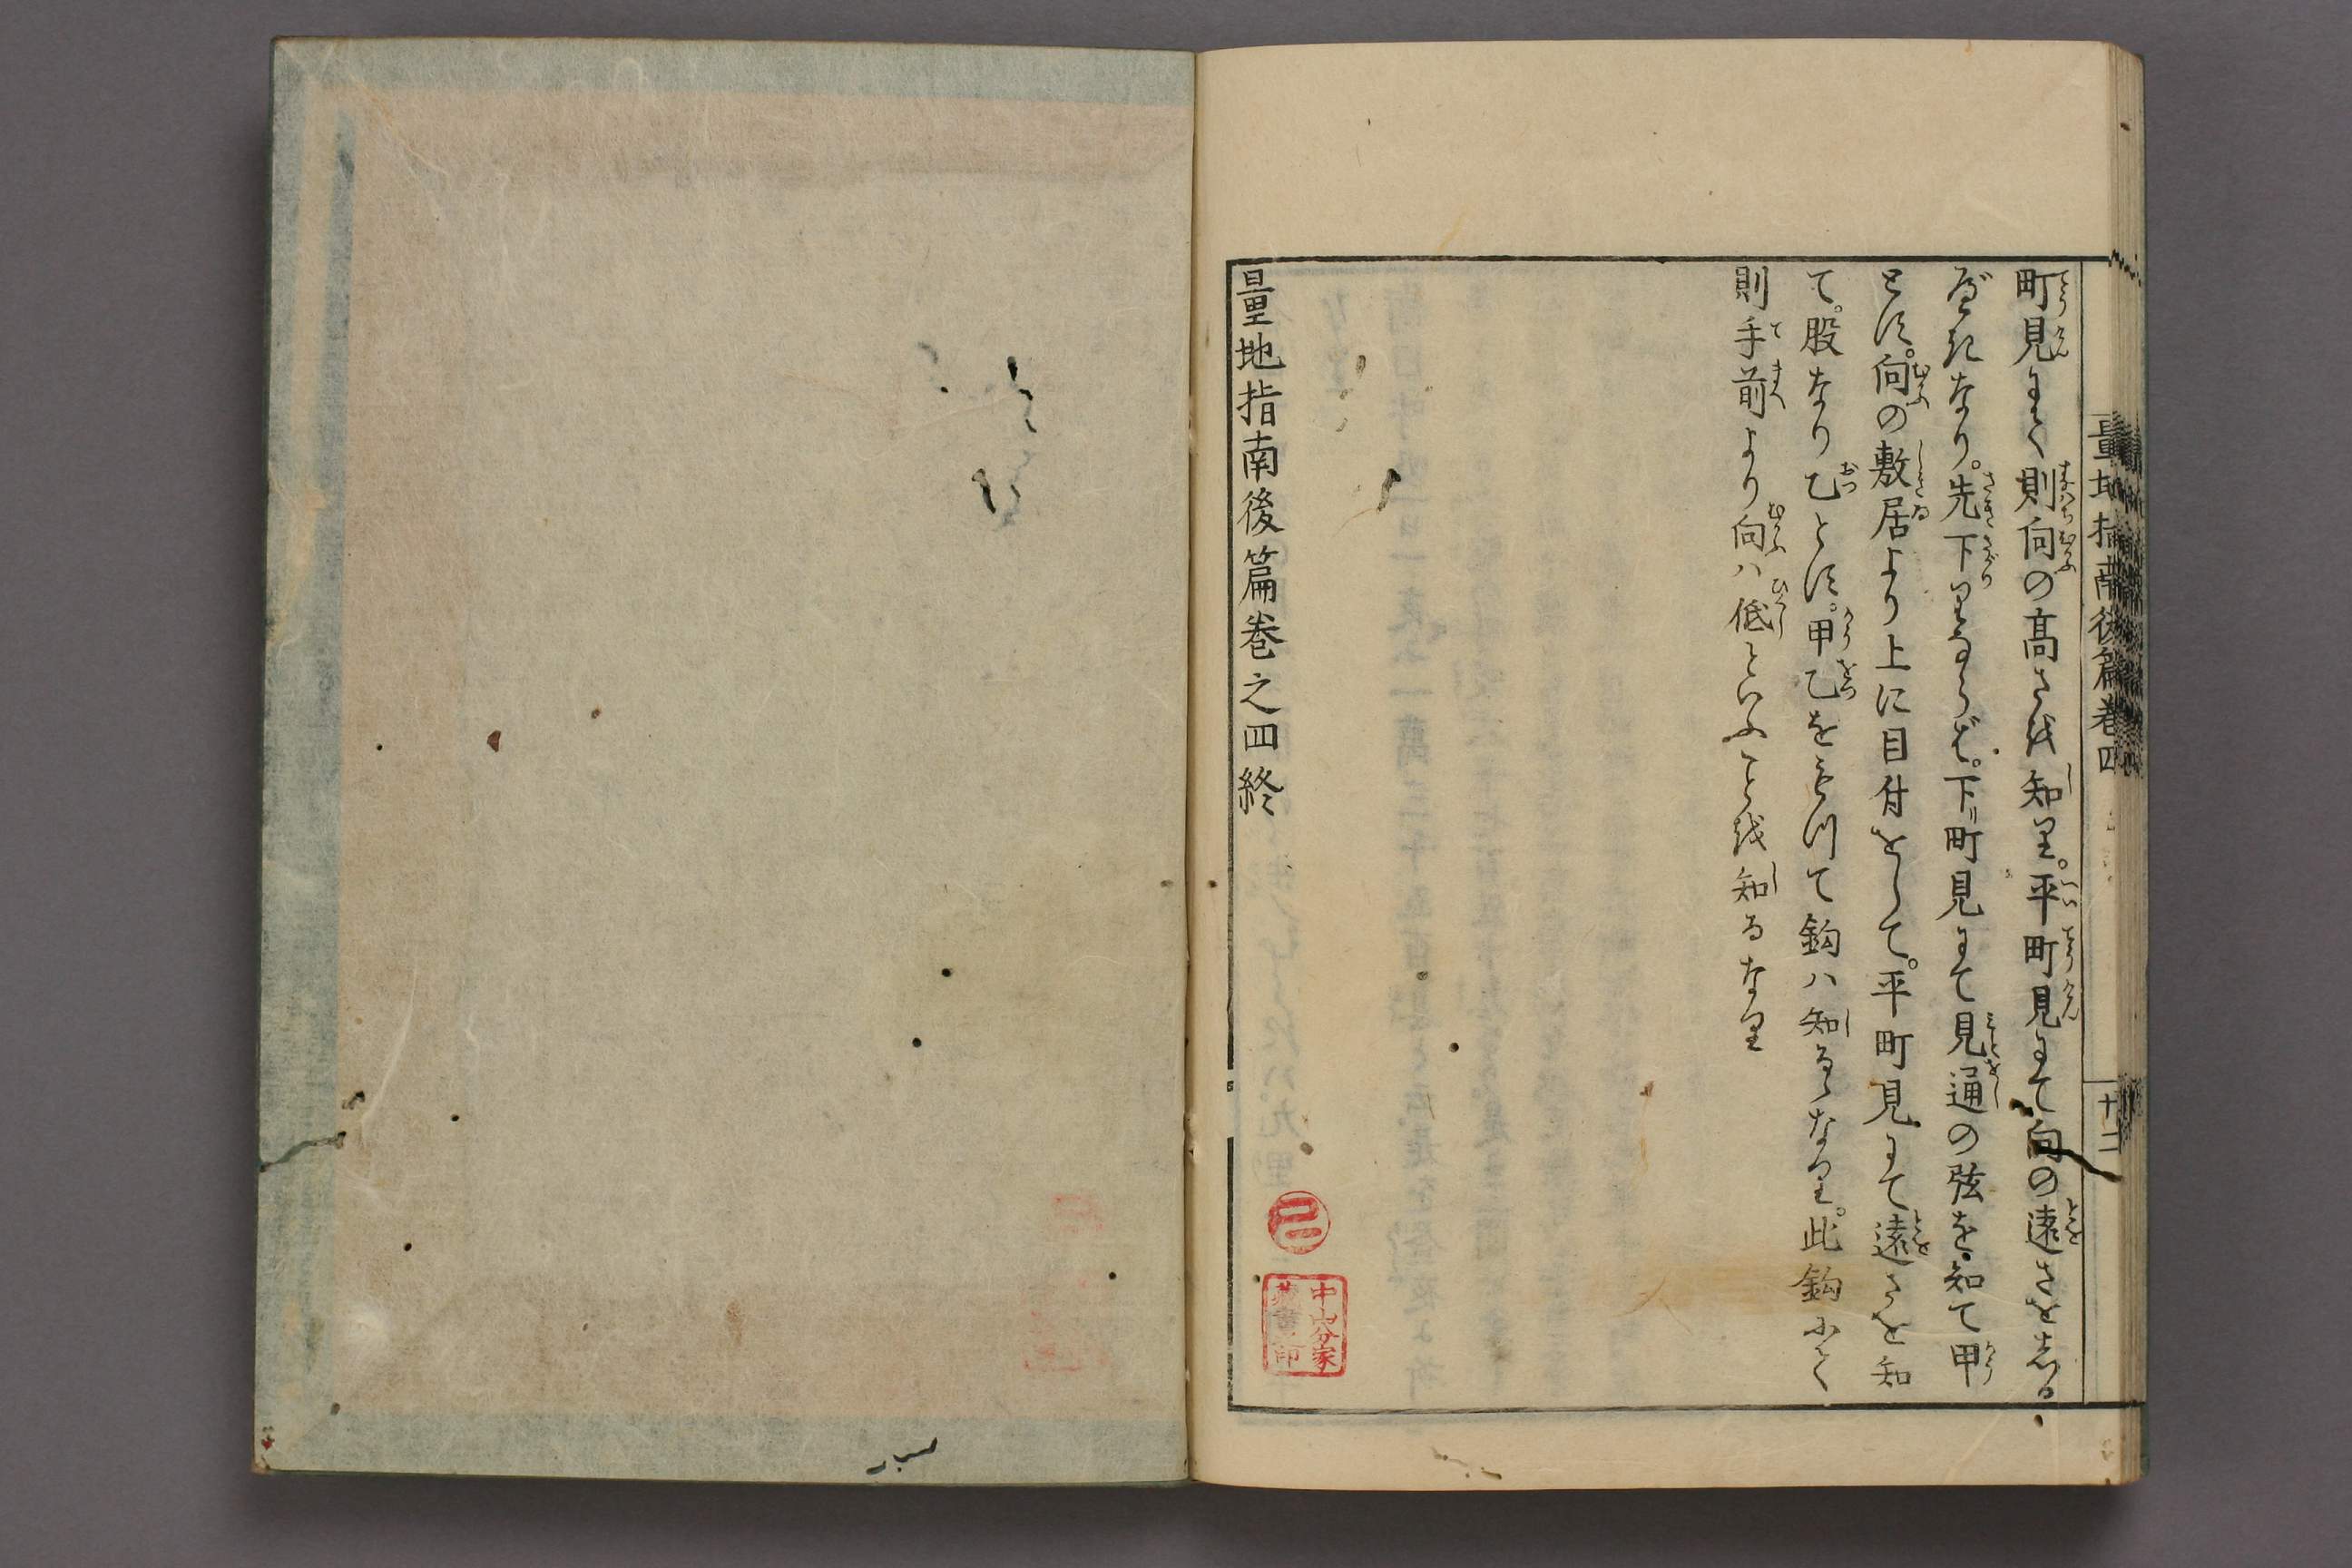 量地指南後篇巻四
十二
町見にて則向の高さを知り。平町見にて向の遠さをしる
べきなり。先下りならば。下リ町見にて見通の弦を知て甲
とす。向の敷居より上に目付をして。平町見にて遠さを知
て。股なり乙とす。甲乙をもつて鈎ハ知るゝなり。此鈎にて
則手前より向ハ低といふことを知るなり
量地指南後篇巻之四終
中山分家